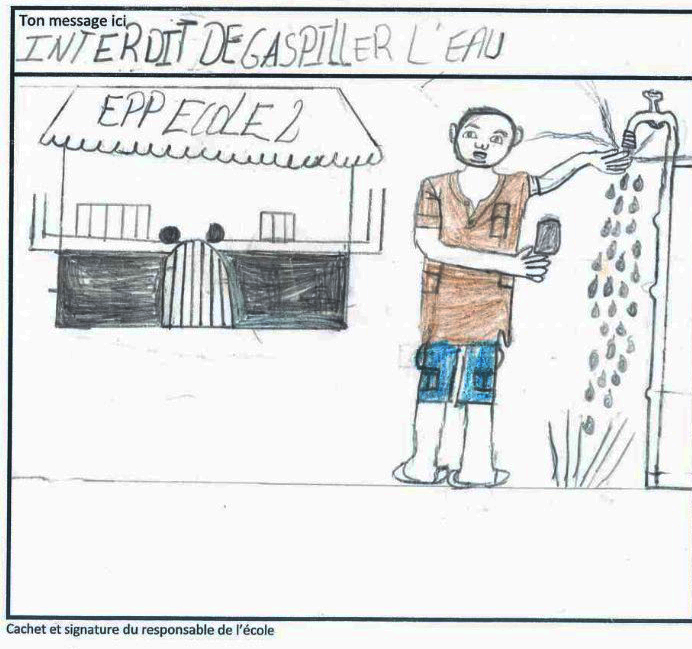 Ton message ici
INTERDIT DE GASPILLER L'EAU
EPP ECOLE 2
Cachet et signature du responsable de l'école